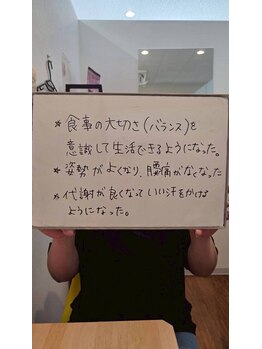 * 食事の大切さ(バランス)を
意識して生活できるようになった。
* 姿勢がよくなり、腰痛がなくなった
* 代謝が良くなっていい汗をかける
ようになった。